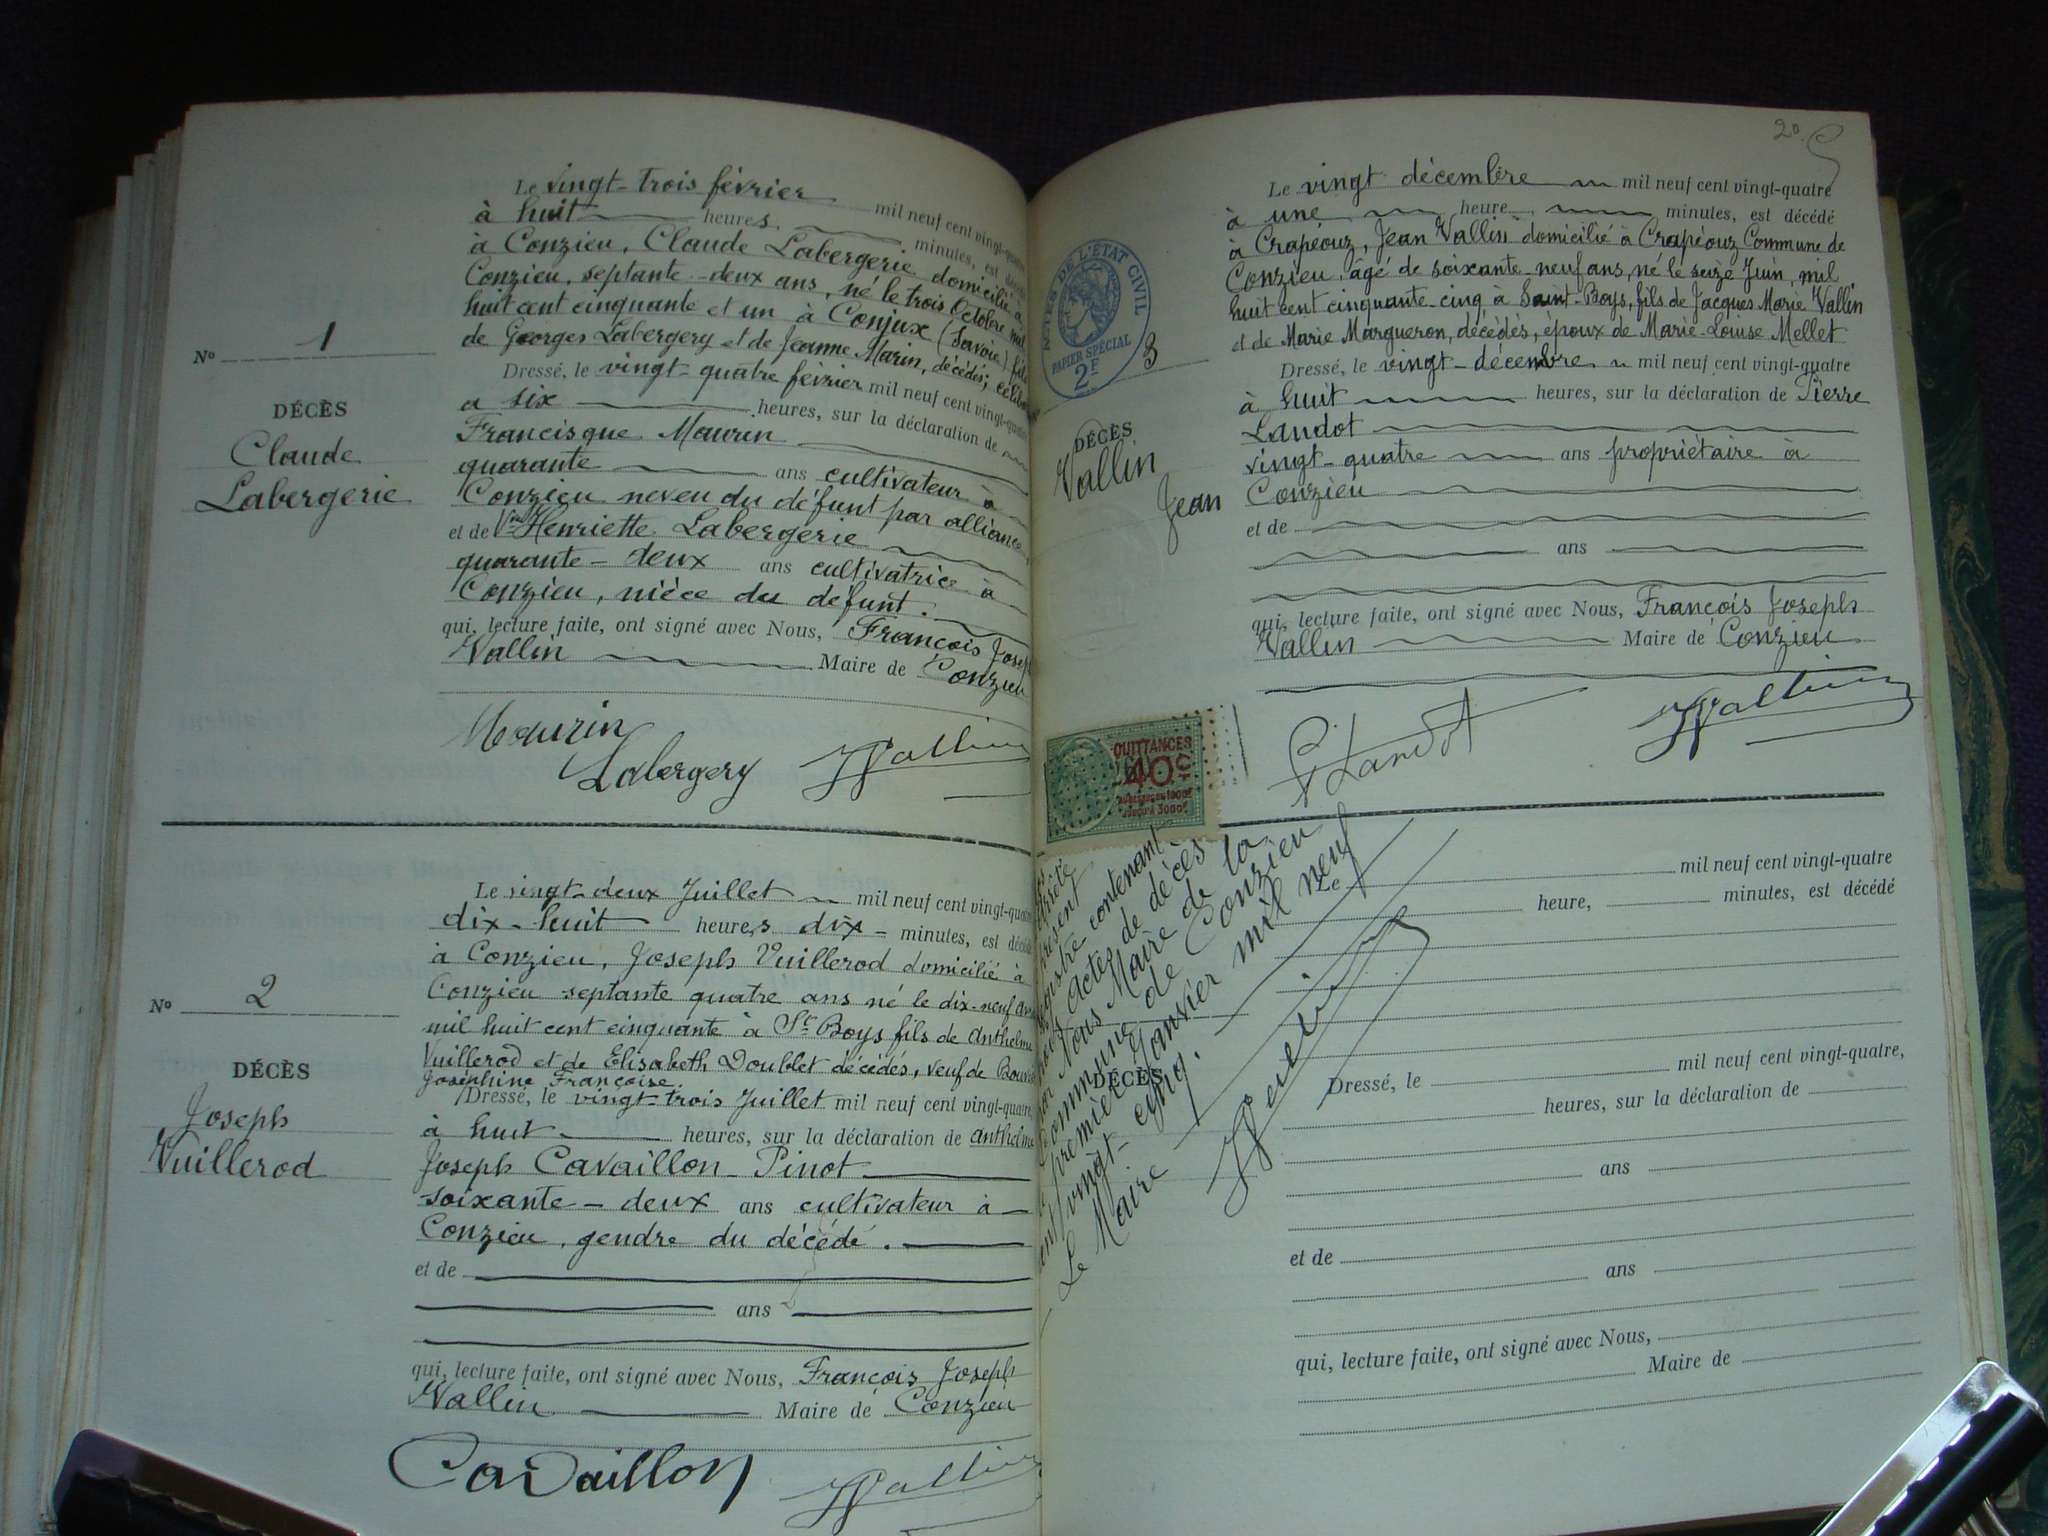 Le vingt-trois février mil neuf cent vingt-quatre
à huit heures, minutes, est
à Conzieu, Claude Labergerie domicilié à
Conzieu, septante-deux ans, né le trois Octobre mil
huit cent cinquante et un à Conjux (Savoie) fils
de Georges Labergery et de Jeanne Marin, décédés;
Dressé, le vingt-quatre février mil neuf cent vingt-quatre
à six heures, sur la déclaration de
Francisque Maurin
quarante ans cultivateur à
Conzieu neveu du défunt par alliance,
et de Vve Henriette Labergerie
quarante-deux ans cultivatrice à
Conzieu, nièce du défunt.
qui, lecture faite, ont signé avec Nous, François Joseph
Vallin Maire de Conzieu
Nº 1
DÉCÈS
Claude
Labergerie
Maurin
Labergery Vallin
Le vingt-deux Juillet mil neuf cent vingt-quatre
dix-huit heures dix minutes, est décédé
à Conzieu, Joseph Vuillerod domicilié à
Conzieu septante quatre ans né le dix-neuf
mil huit cent cinquante à St Boys fils de Anthelme
Vuillerod et de Elisabeth Doublet décédés, veuf de
Joséphine Françoise
Dressé, le vingt-trois Juillet mil neuf cent vingt-quatre,
à huit heures, sur la déclaration de Anthelme
Joseph Cavaillon-Pinot
soixante-deux ans cultivateur à
Conzieu, gendre du décédé.
et de
ans
qui, lecture faite, ont signé avec Nous, François Joseph
Vallin Maire de Conzieu
Nº 2
DÉCÈS
Joseph
Vuillerod
Cavaillon Vallin
20
Le vingt décembre mil neuf cent vingt-quatre
à une heure minutes, est décédé
à Crapéouz, Jean Vallin domicilié à Crapéouz Commune de
Conzieu, âgé de soixante-neuf ans, né le seize Juin, mil
huit cent cinquante-cinq à Saint-Boys, fils de Jacques Marie Vallin
et de Marie Margueron, décédés, époux de Marie-Louise Mellet
Dressé, le vingt-décembre mil neuf cent vingt-quatre
à huit heures, sur la déclaration de Pierre
Landot
vingt-quatre ans propriétaire à
Conzieu
et de
ans
qui, lecture faite, ont signé avec Nous, François Joseph
Vallin Maire de Conzieu
ACTES DE L'ÉTAT CIVIL
PAPIER SPÉCIAL
2F
3
DÉCÈS
Vallin
Jean
P. Landot Vallin
QUITTANCES
40c
JUSQU'A 3000f
présent
registre contenant
actes de décès
par Nous Maire de la
Commune de Conzieu
le premier Janvier mil neuf
cent vingt-cinq.
Le Maire
Vallin
Le mil neuf cent vingt-quatre
heure, minutes, est décédé
DÉCÈS
Dressé, le mil neuf cent vingt-quatre,
heures, sur la déclaration de
ans
et de
ans
qui, lecture faite, ont signé avec Nous,
Maire de